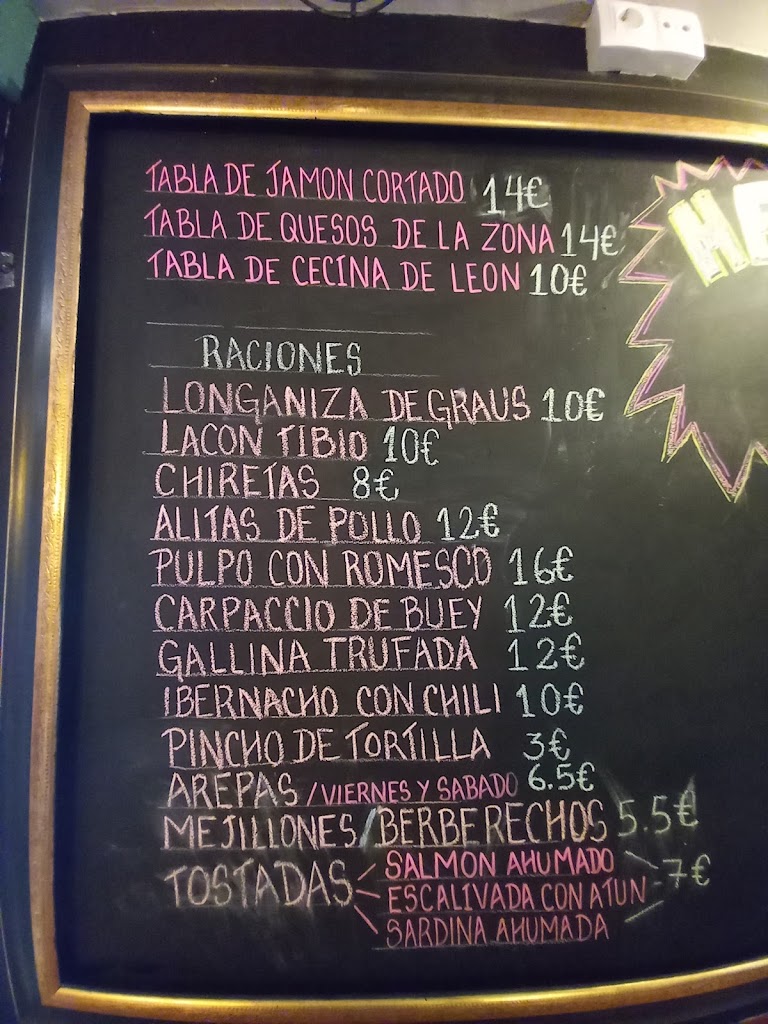 TABLA DE JAMON CORTADO 14€
TABLA DE QUESOS DE LA ZONA 14€
TABLA DE CECINA DE LEON 10€
RACIONES
LONGANIZA DE GRAUS 10€
LACON TIBIO 10€
CHIRETAS 8€
ALITAS DE POLLO 12€
PULPO CON ROMESCO 16€
CARPACCIO DE BUEY 12€
GALLINA TRUFADA 12€
IBERNACHO CON CHILI 10€
PINCHO DE TORTILLA 3€
AREPAS / VIERNES Y SABADO 6.5€
MEJILLONES/BERBERECHOS 5.5€
TOSTADAS
SALMON AHUMADO
ESCALIVADA CON ATUN
SARDINA AHUMADA
7€